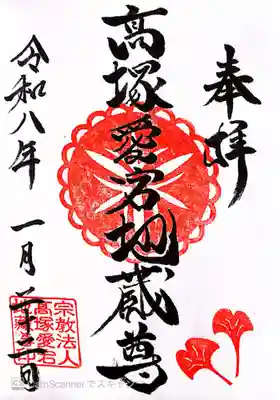 奉拝
高塚愛宕地蔵尊
令和八年 一月二十二日
宗教法人
高塚愛宕
地蔵尊印
CamScannerでスキャン